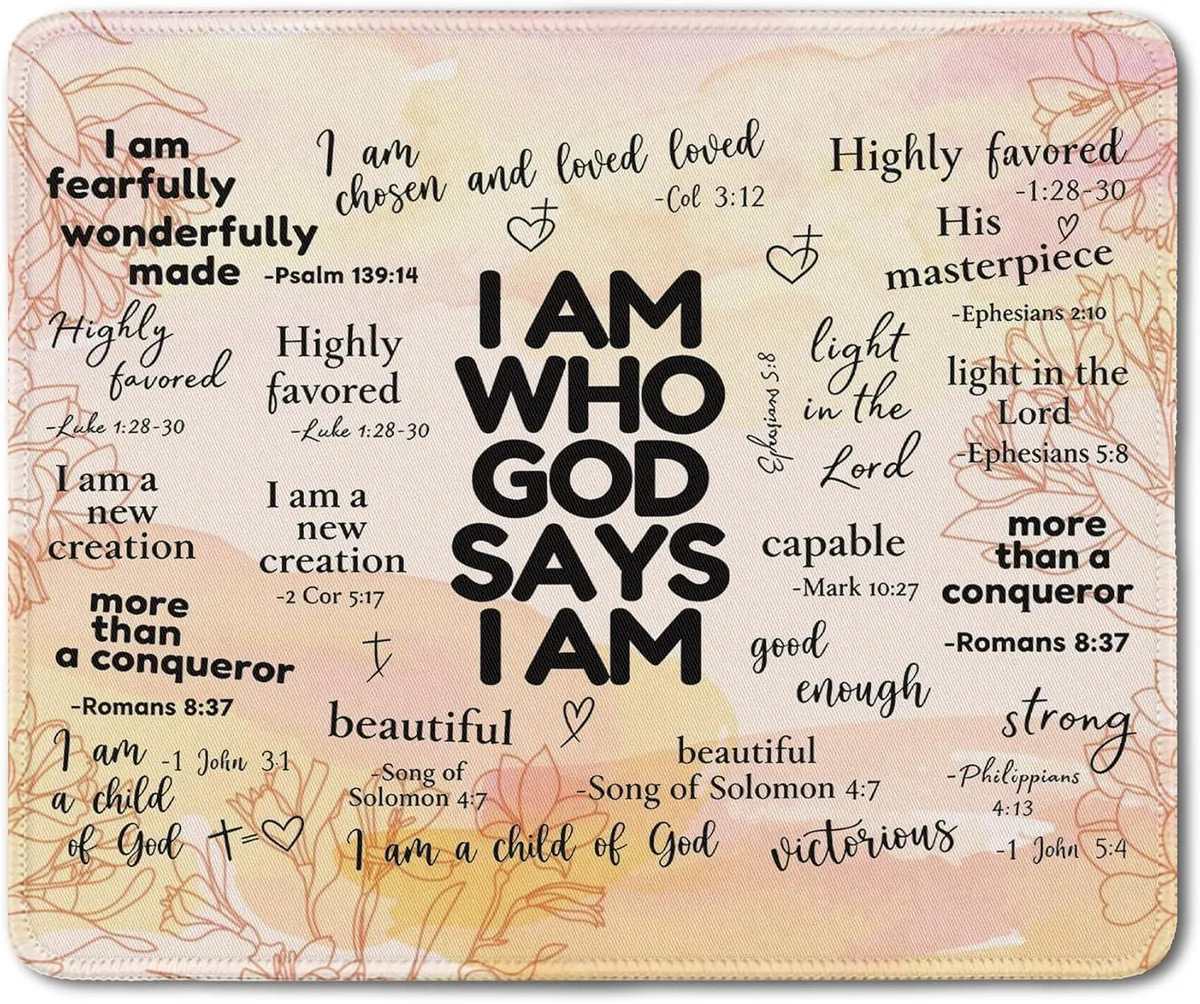 I am
fearfully
wonderfully
made -Psalm 139:14
I am
chosen and loved loved
-Col 3:12
Highly favored
-1:28-30
His
masterpiece
-Ephesians 2:10
Highly
favored
-Luke 1:28-30
Highly
favored
-Luke 1:28-30
I AM
WHO
GOD
SAYS
I AM
Ephesians 5:8
light
in the
Lord
light in the
Lord
-Ephesians 5:8
I am a
new
creation
I am a
new
creation
-2 Cor 5:17
capable
-Mark 10:27
more
than a
conqueror
-Romans 8:37
more
than
a conqueror
-Romans 8:37
good
enough
strong
-Philippians
4:13
I am -1 John 3:1
a child
of God
beautiful
-Song of
Solomon 4:7
beautiful
-Song of Solomon 4:7
I am a child of God
victorious -1 John 5:4